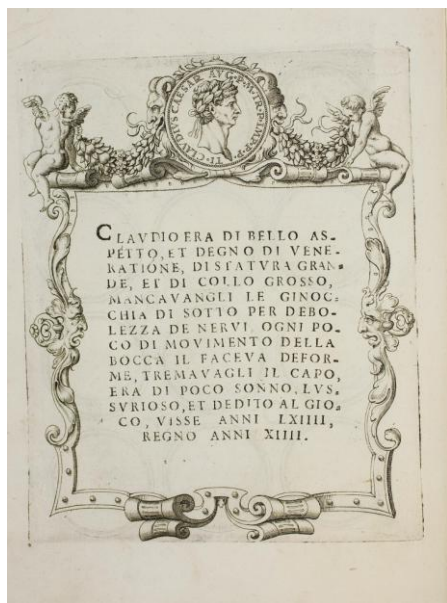 TI·CLAVDIVS CAESAR AVG·P·M·TR·P·IMP·P·P·
CLAVDIO ERA DI BELLO AS-
PETTO, ET DEGNO DI VENE-
RATIONE, DI STATVRA GRAN-
DE, ET DI COLLO GROSSO,
MANCAVANGLI LE GINOC-
CHIA DI SOTTO PER DEBO-
LEZZA DE NERVI, OGNI PO-
CO DI MOVIMENTO DELLA
BOCCA IL FACEVA DEFOR-
ME, TREMAVAGLI IL CAPO,
ERA DI POCO SONNO, LVS-
SVRIOSO, ET DEDITO AL GIO-
CO, VISSE ANNI LXIIII,
REGNO ANNI XIIII.